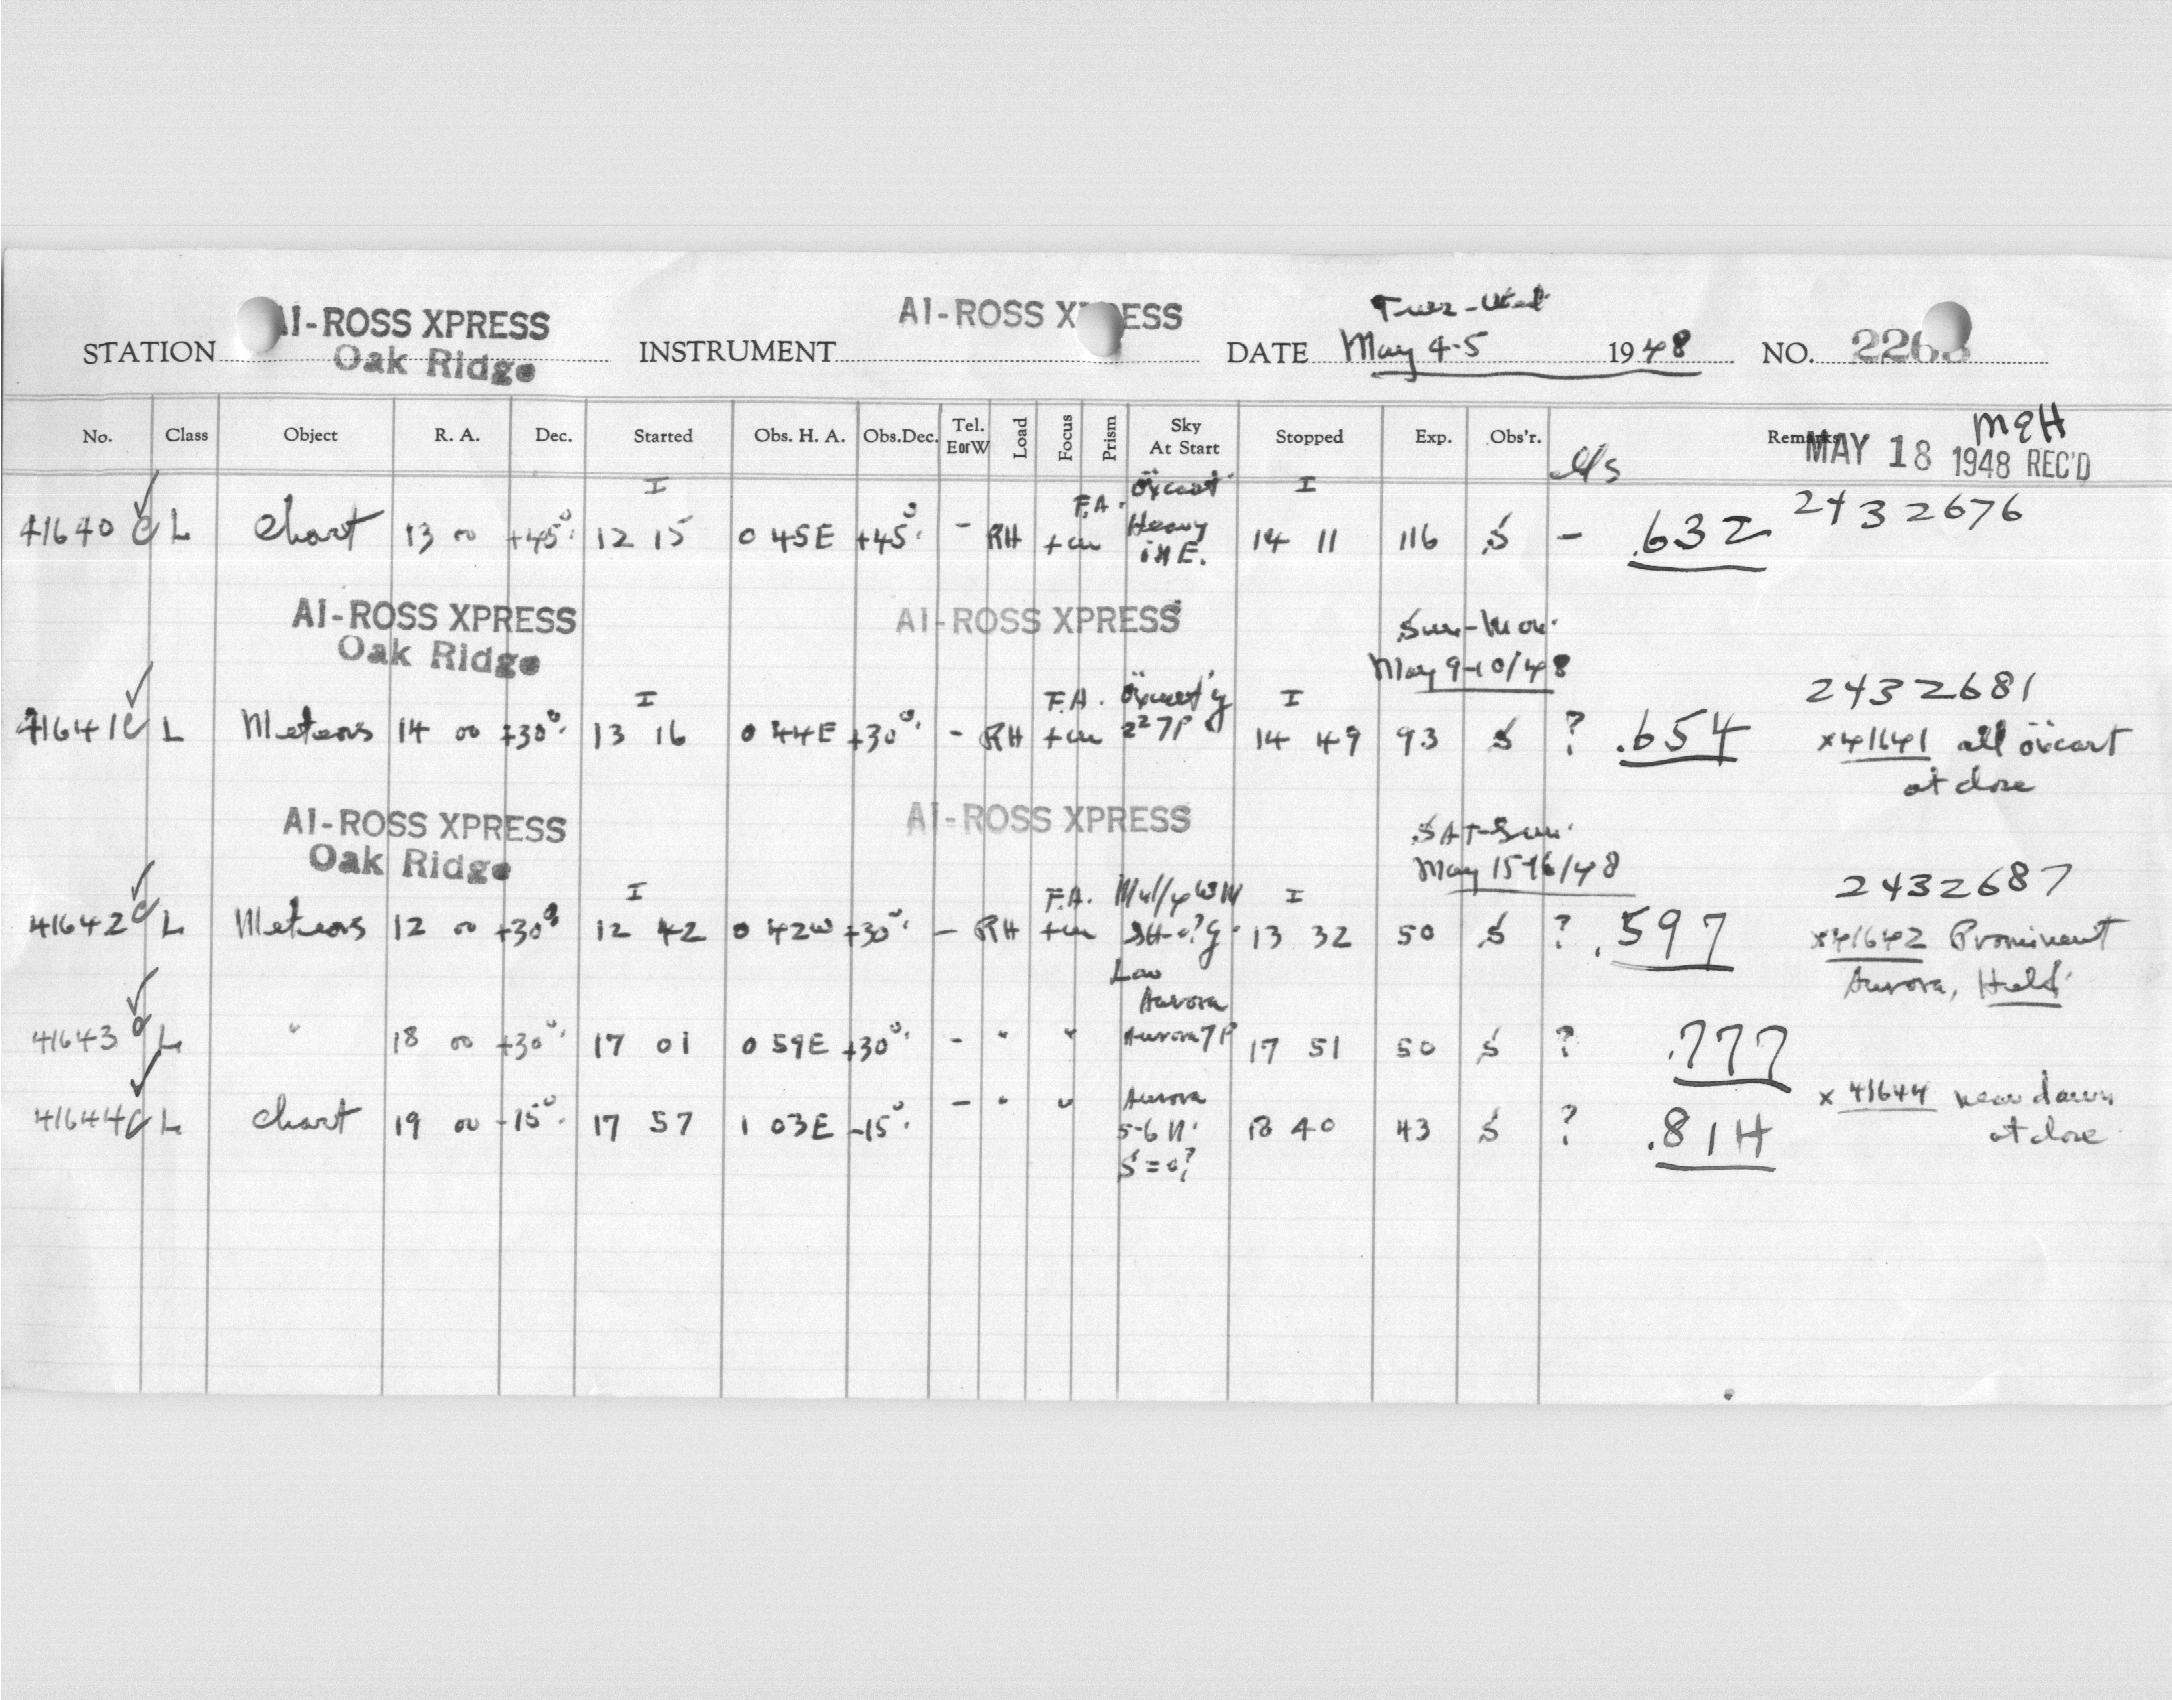 AI-ROSS XPRESS AI-ROSS XPRESS Tues-Wed.
STATION Oak Ridge INSTRUMENT DATE May 4-5 1948 NO. 2263
No. Class Object R. A. Dec. Started Obs. H. A. Obs.Dec. Tel. EorW Load Focus Prism Sky At Start Stopped Exp. Obs'r. Remarks
MAY 18 1948 REC'D
I F.A. I 2432676
41640 C L Chart 13 00 +45° 12 15 0 45E +45° - RH Heavy in E. 14 11 116 S - .632
AI-ROSS XPRESS AI-ROSS XPRESS Sun-Mon.
Oak Ridge May 9-10/48
I F.A. I 2432681
41641 C L Meteors 14 00 +30° 13 16 0 44E +30° - RH 14 49 93 S ? .654 x41641 all
at close
AI-ROSS XPRESS AI-ROSS XPRESS SAT-Sun.
Oak Ridge May 15-16/48
I F.A. I 2432687
41642 C L Meteors 12 00 +30° 12 42 0 42W +30° - RH 13 32 50 S ? .597 x41642 Prominent
Low Aurora Aurora, Held.
41643 L " 18 00 +30° 17 01 0 59E +30° - " " Aurora 7P 17 51 50 S ? .777
41644 C L Chart 19 00 -15° 17 57 1 03E -15° - " " Aurora 5-6 N. S=0? 18 40 43 S ? .81H x 41644 near dawn
at close